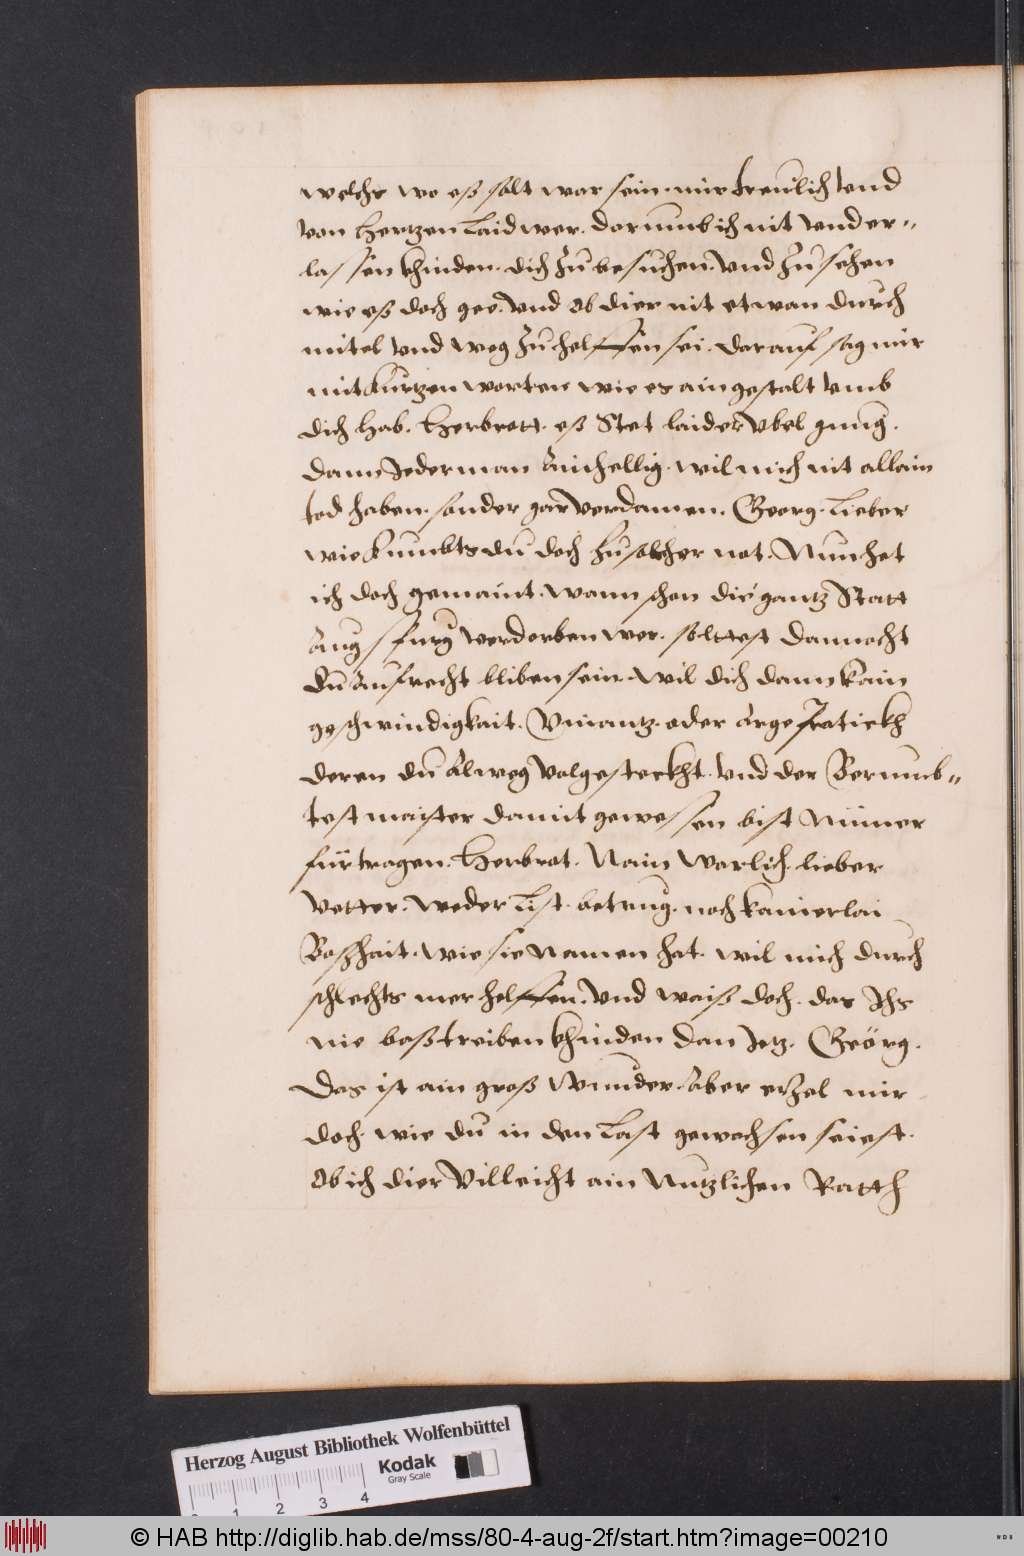 welchs wo eß solt war sein. mir treulich vnd
von Hertzen Laid wer. darumb ich nit vnder-
lassen khinden. dich zu besuchen. vnd zu sehen
wie eß doch gee. vnd ob dier nit etwan durch
mitel vnd weg zu helffen sei. darauf sag mir
mit kurtzen worten wie es ain gestalt vmb
dich hab. Herbrott. eß Stet laider vbel gnung.
dann Jederman ainhellig. wil mich nit allain
tod haben. sonder gar verdamen. Georg. Lieber
wie kumbts du doch zu solcher not. Nun het
ich doch gemaint. wann schon die gantz Statt
Augspurg verdorben wer. solttest dannocht
du aufrecht bliben sein. wil dich dann kain
geschwindigkait. Vinantz. oder arge Pratickh
deren du alweg volgesteckht. vnd der Berumb-
test maister damit gewessen bist nimer
fürtragen. Herbrot. Nain warlich. lieber
Vetter. weder List. betrug. noch kainerlai
Boßhait. wie sie namen hat. wil mich durch
schlechts mer helffen. vnd waiß doch. das Ichs
nie baß treiben khinden dan Jetz. Geörg.
Das ist ain groß wunder. aber erzel mir
doch. wie du in den Last gewachsen seiest.
ob ich dier villeicht ain nutzlichen Ratth
Herzog August Bibliothek Wolfenbüttel
Kodak
Gray Scale
1 2 3 4
© HAB http://diglib.hab.de/mss/80-4-aug-2f/start.htm?image=00210